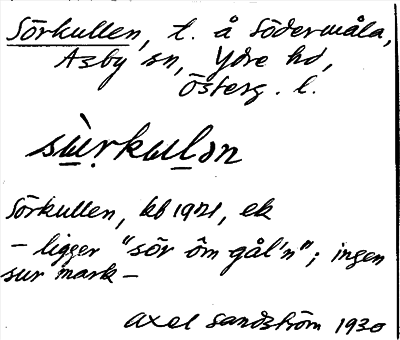 Sörkullen, t. å Södermåla,
Asby sn, Ydre hd,
Österg. l.
sù̱ṛkuḻən
Sörkullen, kb 1921, ek
– ligger "sör ôm gål'n"; ingen
sur mark –
Axel Sandström 1930